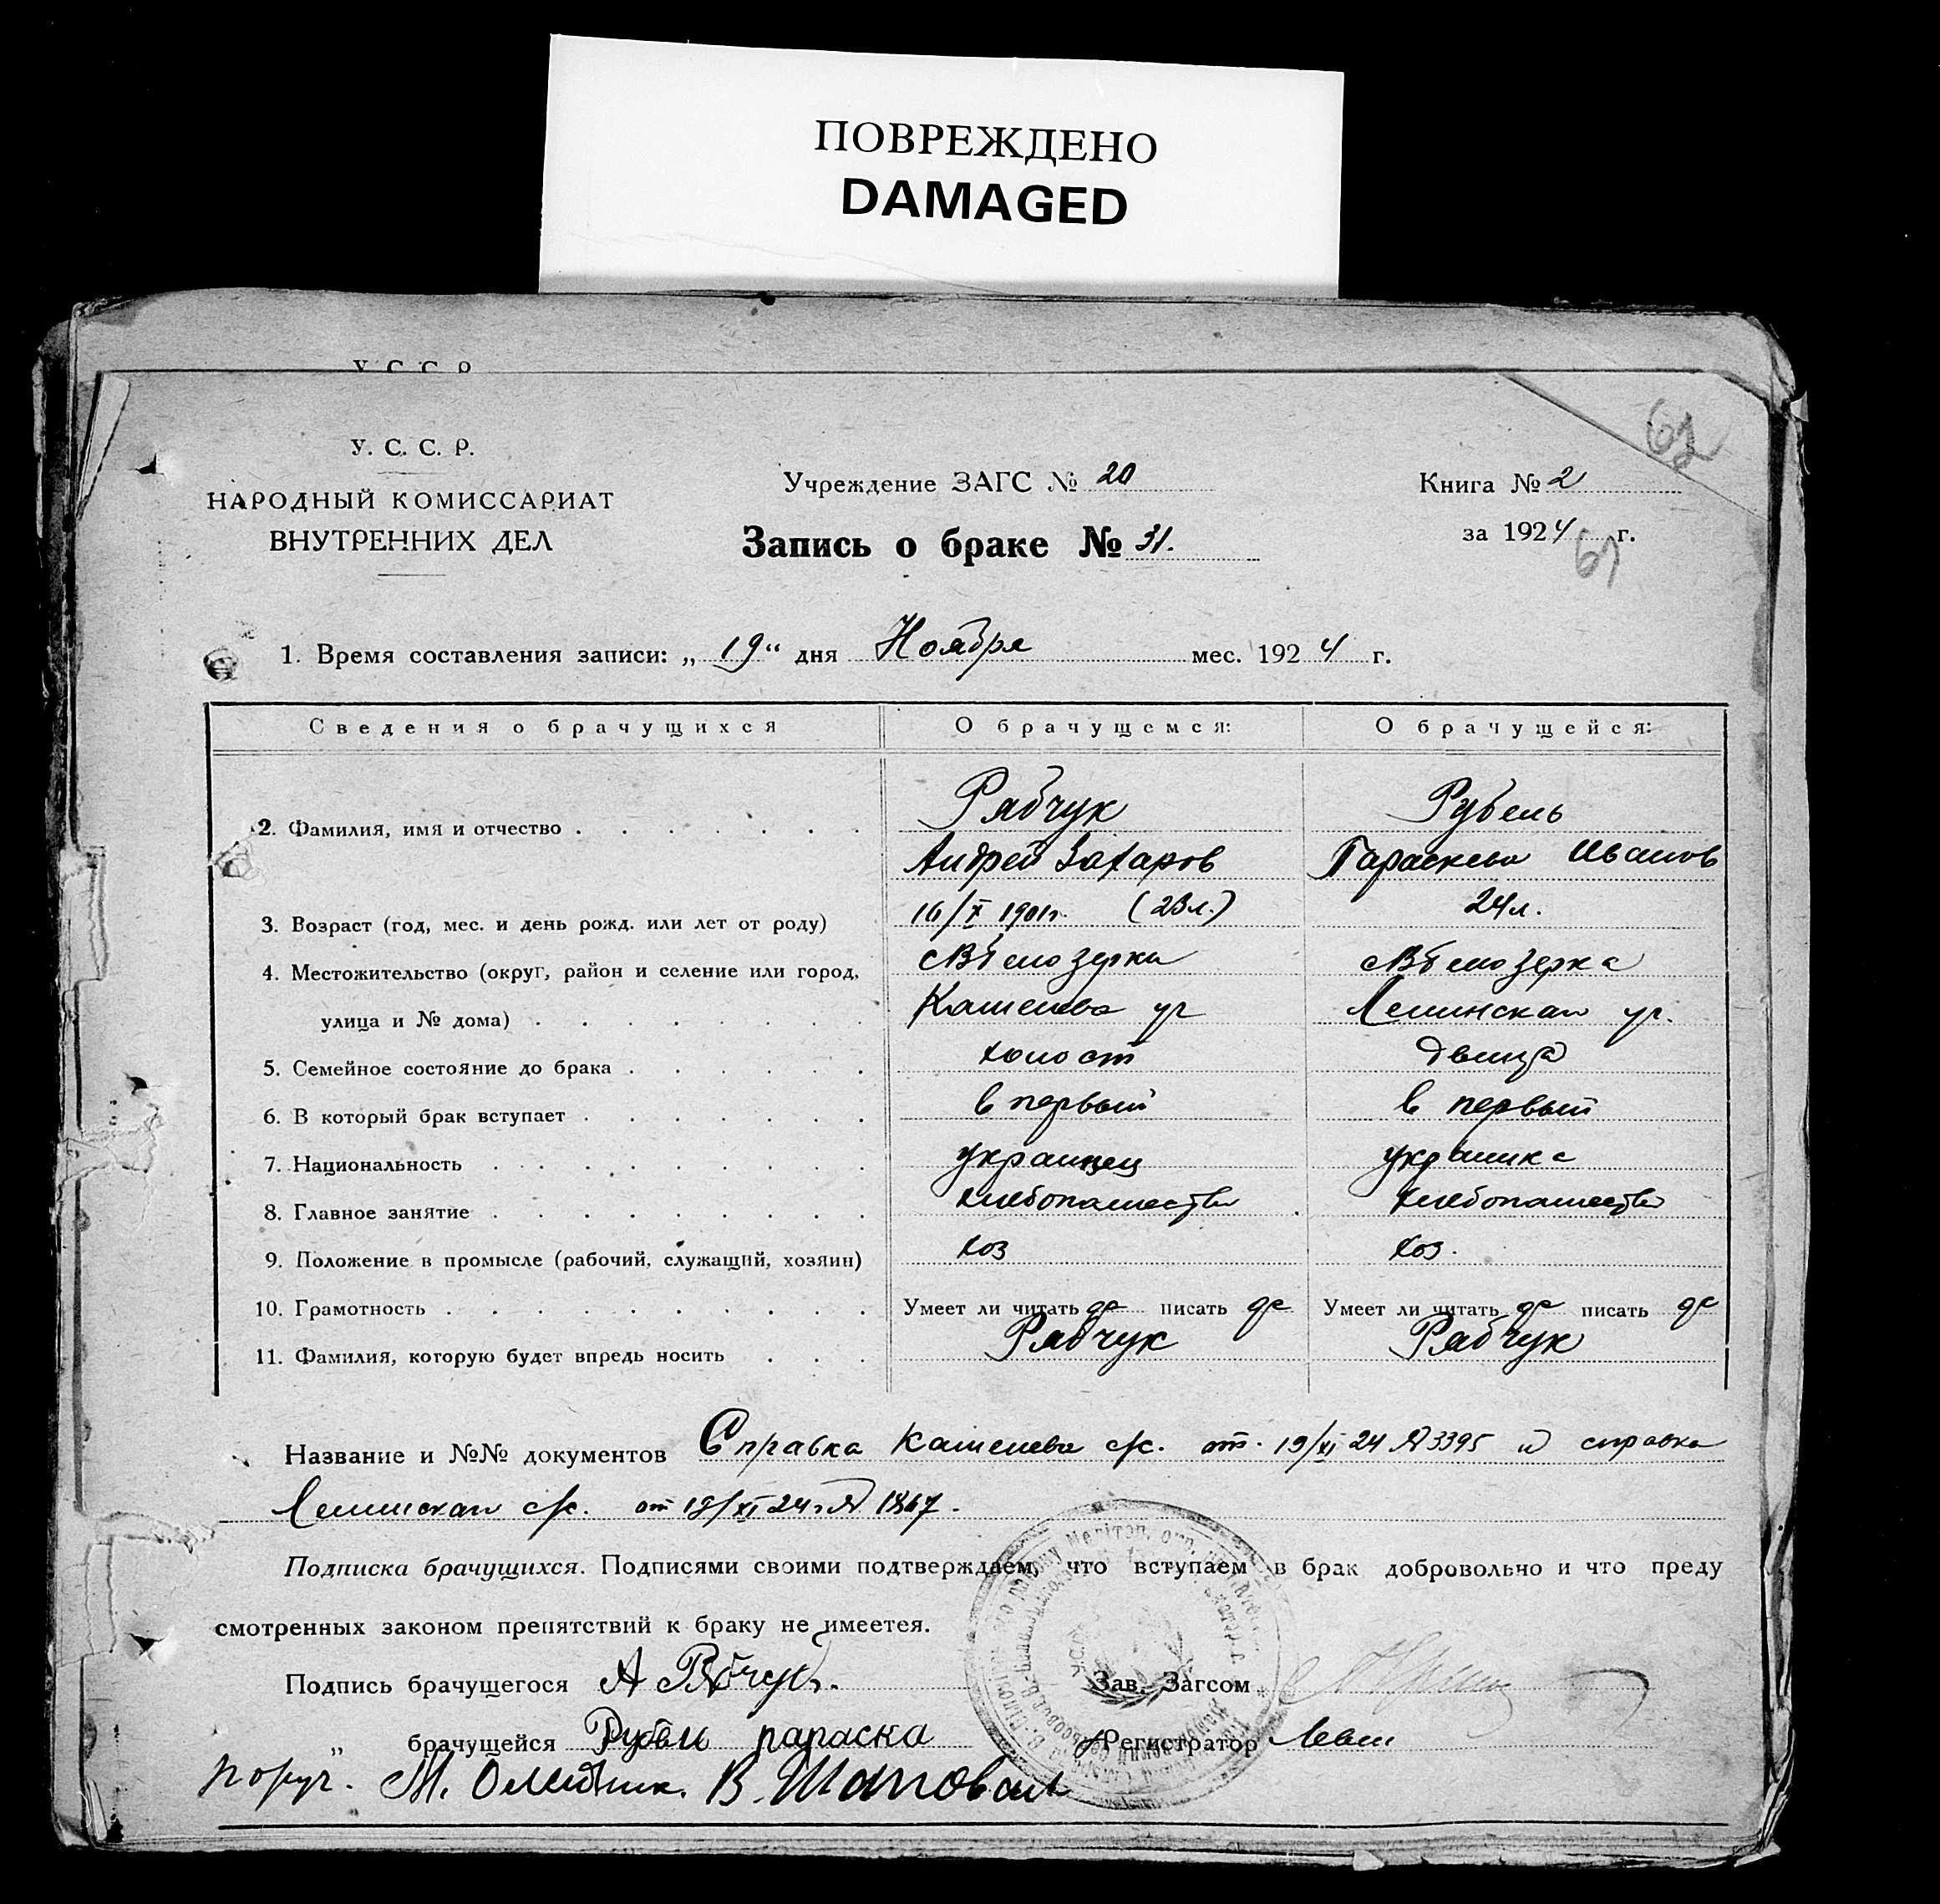 ПОВРЕЖДЕНО
DAMAGED
У. С. С. Р.
У. С. С. Р.
НАРОДНЫЙ КОМИССАРИАТ
ВНУТРЕННИХ ДЕЛ
Учреждение ЗАГС № 20
Запись о браке № 31.
62
Книга № 2
за 1924 г.
61
1. Время составления записи: „ 19 “ дня Ноября мес. 1924 г.
Сведения о брачущихся О брачущемся: О брачущейся:
Рябчук Рубель
2. Фамилия, имя и отчество
Андрей Захаров Параскева Иванов
3. Возраст (год, мес. и день рожд. или лет от роду) 16/X 1901г. (23л.) 24л.
4. Местожительство (округ, район и селение или город, с Вбелозерка с Вбелозерка
улица и № дома) Ленинская
5. Семейное состояние до брака холост двица
6. В который брак вступает в первый в первый
7. Национальность украинец украинка
8. Главное занятие хлебопашество хлебопашество
9. Положение в промысле (рабочий, служащий, хозяин) хоз хоз.
10. Грамотность Умеет ли читать да писать да Умеет ли читать да писать да
11. Фамилия, которую будет впредь носить Рябчук Рябчук
Название и №№ документов Справка с/с. от 19/XI 24 № 3395 и справка
Ленинская с/с. от 19/XI 24г № 1867.
Подписка брачущихся. Подписями своими подтверждаем, что вступаем в брак добровольно и что преду
смотренных законом препятствий к браку не имеется.
Подпись брачущегося Зав. Загсом
„ брачущейся Рубель параска Регистратор
поруч. М. В. Шаповал